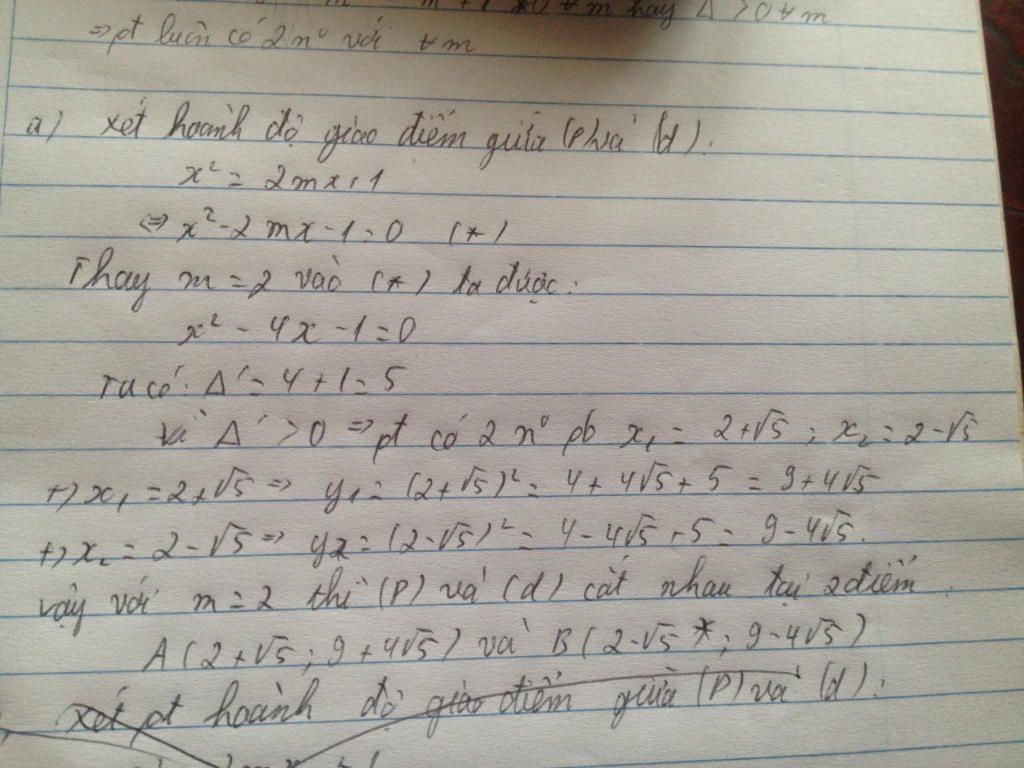 m + 1 ≠ 0 ∀ m hay Δ > 0 ∀ m
=> pt luôn có 2 n⁰ với ∀ m
a) xét hoành độ giao điểm giữa (P) và (d):
x² = 2mx + 1
<=> x² - 2mx - 1 = 0 (*)
Thay m = 2 vào (*) ta được:
x² - 4x - 1 = 0
Ta có: Δ' = 4 + 1 = 5
và Δ' > 0 => pt có 2 n⁰ pb x₁ = 2+√5 ; x₂ = 2-√5
+) x₁ = 2+√5 => y₁ = (2+√5)² = 4 + 4√5 + 5 = 9 + 4√5
+) x₂ = 2-√5 => y₂ = (2-√5)² = 4 - 4√5 + 5 = 9 - 4√5.
Vậy với m = 2 thì (P) và (d) cắt nhau tại 2 điểm
A(2+√5 ; 9+4√5) và B(2-√5 ; 9-4√5)
Xét pt hoành độ giao điểm giữa (P) và (d):